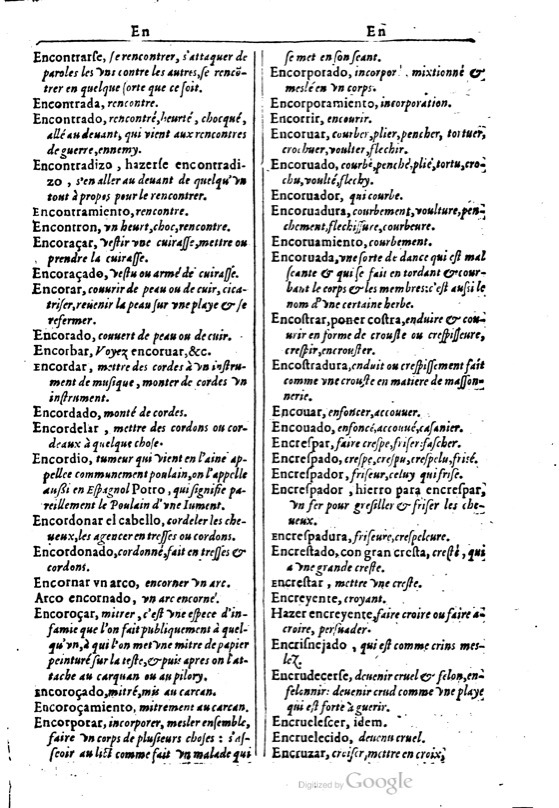 En
En
Encontrarse, se rencontrer, s'attaquer de
paroles les vns contre les autres, se rencō-
trer en quelque sorte que ce soit.
Encontrada, rencontre.
Encontrado, rencontré, heurté, chocqué,
allé au deuant, qui vient aux rencontres
de guerre, ennemy.
Encontradizo, hazerse encontradi-
zo, s'en aller au deuant de quelqu'vn
tout à propos pour le rencontrer.
Encontramiento, rencontre.
Encontron, vn heurt, choc, rencontre.
Encoraçar, vestir vne cuirasse, mettre ou
prendre la cuirasse.
Encoraçado, vestu ou armé de cuirasse.
Encorar, couurir de peau ou de cuir, cica-
triser, reuenir la peau sur vne playe & se
refermer.
Encorado, couuert de peau ou de cuir.
Encorbar, Voyez encoruar, &c.
Encordar, mettre des cordes à vn instru-
ment de musique, monter de cordes vn
instrument.
Encordado, monté de cordes.
Encordelar, mettre des cordons ou cor-
deaux à quelque chose.
Encordio, tumeur qui vient en l'aine ap-
pellee communement poulain, on l'appelle
aussi en Espagnol Potro, qui signifie pa-
reillement le Poulain d'vne Iument.
Encordonar el cabello, cordeler les che-
ueux, les agencer en tresses ou cordons.
Encordonado, cordonné, fait en tresses &
cordons.
Encornar vn arco, encorner vn arc.
Arco encornado, vn arc encorné.
Encoroçar, mitrer, c'est vne espece d'in-
famie que l'on fait publiquement à quel-
qu'vn, à qui l'on met vne mitre de papier
peinturé sur la teste, & puis apres on l'at-
tache au carquan ou au pilory.
Encoroçado, mitré, mis au carcan.
Encoroçamiento, mitrement au carcan.
Encorporar, incorporer, mesler ensemble,
faire vn corps de plusieurs choses: s'as-
seoir au lict comme fait vn malade qui
se met en son seant.
Encorporado, incorporé, mixtionné &
meslé en vn corps.
Encorporamiento, incorporation.
Encorrir, encourir.
Encoruar, courber, plier, pencher, tortuer,
crochuer, voulter, flechir.
Encoruado, courbé, penché, plié, tortu, cro-
chu, voulté, flechy.
Encoruador, qui courbe.
Encoruadura, courbement, voulture, pen-
chement, flechissure, courbeure.
Encoruamiento, courbement.
Encoruada, vne sorte de dance qui est mal
seante & qui se fait en tordant & cour-
bant le corps & les membres: c'est aussi le
nom d'vne certaine herbe.
Encostrar, poner costra, enduire & cou-
urir en forme de crouste ou crespisseure,
crespir, encrouster.
Encostradura, enduit ou crespissement fait
comme vne crouste en matiere de masson-
nerie.
Encouar, enfoncer, accouuer.
Encouado, enfoncé, accoüué, casanier.
Encrespar, faire crespe, friser: fascher.
Encrespado, crespe, crespu, crespelu, frisé.
Encrespador, friseur, celuy qui frise.
Encrespador, hierro para encrespar,
vn fer pour gresiller & friser les che-
ueux.
Encrespadura, friseure, crespeleure.
Encrestado, con gran cresta, cresté, qui
a vne grande creste.
Encrestar, mettre vne creste.
Encreyente, croyant.
Hazer encreyente, faire croire ou faire à
croire, persuader.
Encrisnejado, qui est comme crins mes-
lez.
Encrudecerse, deuenir cruel & felon, en-
felonnir: deuenir crud comme vne playe
qui est forte à guerir.
Encruelescer, idem.
Encruelecido, deuenu cruel.
Encruzar, croiser, mettre en croix,
Digitized by Google